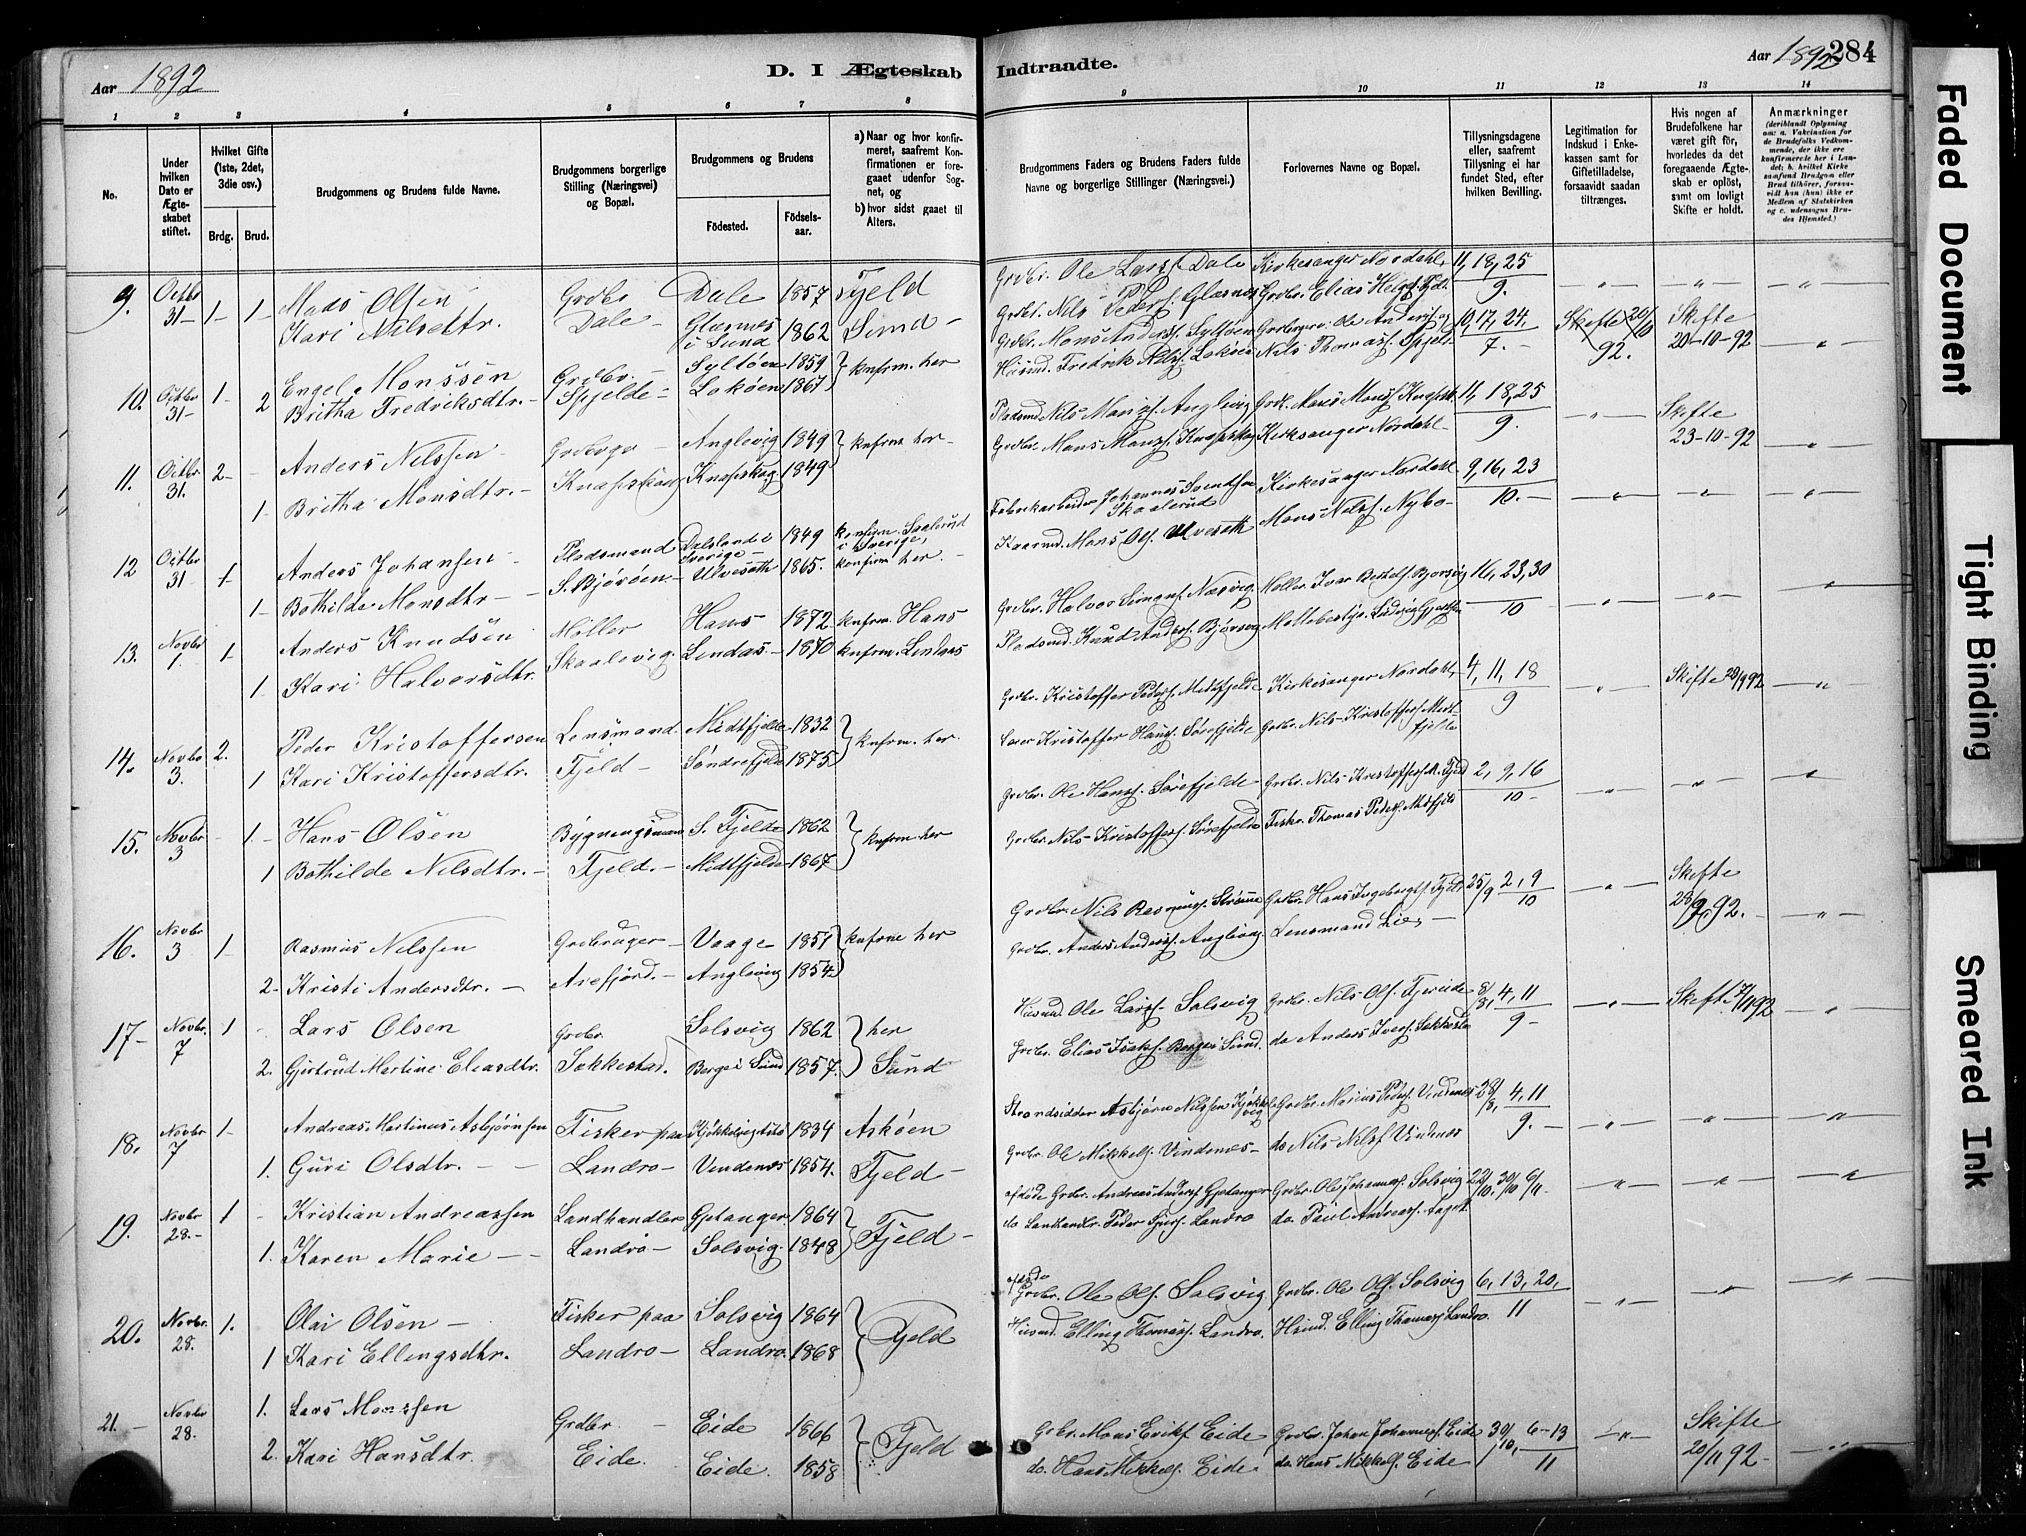 Aar 1892
D. I Ægteskab
Indtraadte.
Aar 1892
284
1 2 3 4 5 6 7 8 9 10 11 12 13 14
No.
Under hvilken Dato er Ægteskabet stiftet.
Hvilket Gifte (1ste, 2det, 3die osv.)
Brdg. Brud.
Brudgommens og Brudens fulde Navne.
Brudgommens borgerlige Stilling (Næringsvei) og Bopæl.
Brudgommens og Brudens
Födested. Födselsaar.
a) Naar og hvor konfirmeret, saafremt Konfirmationen er foregaaet udenfor Sognet, og
b) hvor sidst gaaet til Alters.
Brudgommens Faders og Brudens Faders fulde Navne og borgerlige Stillinger (Næringsvei.)
Forlovernes Navne og Bopæl.
Tillysningsdagene eller, saafremt Tillysning ei har fundet Sted, efter hvilken Bevilling.
Legitimation for Indskud i Enkekassen samt for Giftetilladelse, forsaavidt saadan tiltrænges.
Hvis nogen af Brudefolkene har været gift för, hvorledes da det foregaaende Ægteskab er oplöst, samt om lovligt Skifte er holdt.
Anmærkninger
(deriblandt Oplysning om: a. Vakcination for de Brudefolks Vedkommende, der ikke ere konfirmerede her i Landet; b. hvilket Kirkesamfund Brudgom eller Brud tilhörer, forsaavidt han (hun) ikke er Medlem af Statskirken og c. udensogns Brudes Hjemsted.)
9. Octbr 31 - 1 - 1 - Mads Olsen Grdbr Dale 1857 Fjeld Grdbr. Ole Larss. Dale Kirkesanger Nordahl 11, 18, 25
Kari Nilsdtr. Dale - Glæsnes i Sund 1862 Sund - Grdbr. Nils Peders. Glæsnes Grdbr. Elias 9.
10. Octbr 31 - 1 - 2 Engel Monssen Grdbr. - Syltöen 1859 knfrm. her Grdbr. Mons Anders. Syltöen 10, 17, 24. Skifte 20/10 92. Skifte 20-10-92
Britha Fredriksdtr. - Spjelde - Loköen 1867 Husmd. Fredrik Loköen Nils Thomass. Spjeld 7. -
11. Octbr. 31. 2 - Anders Nilssen Anglevig 1849 knfrm her - Pladsmd Nils Monss. Anglevig Grdb. Mons Monss. Knapsk. 11, 18, 25 Skifte 23-10-92
1. Britha Monsdtr. - Knapskog Knapskog 1849 Grdbr. Mons Monss. Knapskog Kirkesanger Nordahl - 9.
12 Octbr 31 1 - Anders Johansen - Pladsmand Dalsland i Sverige - 1849 konfirm. i Sverige, Fabrikarbeider Johannes Svendsen Skaalerud Kirkesanger Nordahl 9, 16, 23
1 - Bothilde Monsdtr - - S. Björöen - Ulveseth 1865. konfirm her. - Mons Ols. Ulveseth Mons Nilss. Nybo - 10. -
13. Novbr 1. 1 - Anders Knudsen Möller Hans 1872 knfrm. Hans Grdbr. Halvor Næsvig 16, 23, 30
1. Kari Halvorsdtr. Skaalevig. Lindas - 1870 knfrm. Lindaas Pladsmd. Knud Anders. Bjorsvig 10
14. Novbr 3. 2. Peder Kristoffersen Lensmand. Midtfjelde 1832 knfrm. her. Grdbr. Kristoffer Peders. Midtfjelde Kirkesanger Nordahl 4, 11, 18 Skifte 20/9 92
1 Kari Kristoffersdtr. Fjeld - Söndrefjeld 1875 Lærer Kristoffer Hanss. Sörefjelde Grdbr. Nils Kristoffers. Midtfjelde 9
15. Novbr 3 1 - Hans Olsen Bygningsmand S. Fjelde 1862 knfrm her Grdbr. Ole Hanss. Sörefjelde Grdbr. Nils Kristoffers. Fjeld 2, 9, 16
1 Bothilde Nilsdtr. - Fjeld. - Midtfjelde 1867 Grdbr. Nils Kristoffers. Sörefjelde Fiskr. Thomas Peders. Midtfjelde 10 -
16. Novbr 3 1 - Rasmus Nilssen Grdbruger - Vaage - 1851 knfrm her Grdbr. Nils Rasmuss. Grdbr. Hans Ingebrigts. Fjeld 25/9 2, 9 Skifte
2 - Kristi Andersdtr. - Arefjord. - Anglevig 1854 Grdbr. Anders Anderss. Anglevig Lensmand Lie, - 10 92. -
17 - Novbr. 7 1 - Lars Olsen Grdbr Solsvig 1862 her Husmd Ole Larss. Solsvig Grdbr. Nils Ols. 4, 11 Skifte 7/11 92
2. Gjertrud Martine Eliasdtr. Tokkestad. Berge i Sund 1857. Sund Grdbr. Elias Isaks. Berge i Sund. do Anders Ivers. 9 -
18. Novbr 7 1 - Andreas Martinus Asbjörnsen Fisker paa 1834 Asköen Strandsidder Asbjörn Nilssen Grdbr. Marius Peders. Vindenes 4, 11
1. Guri Olsdtr. - - Landro - Vindenes 1854. Fjeld - Grdbr. Ole Mikkels. Vindenes - do Nils Nilss. Vindenes 9. -
19. Novbr 28. - 1 - Kristian Andreassen Landhandler Gjetanger 1864 Fjeld - afdöde Grdbr. Andreas Anders. Gjetanger Grdbr. Ole Johanness. Solsvig 22/10, 30/10 6/11 -
1. Karen Marie - - Landro - Solsvig. 1848 do Landhandlr. Peder Landro do. Paul Andreass.
20. Novbr. 28. 1. Olai Olsen - Fisker paa Solsvig 1864 Fjeld afdöde Grdbr. Ole Ols. Solsvig Grdbr. Ole Ols. Solsvig 6, 13, 20,
1 Kari Ellingsdtr. Landro - Landro. 1868 Husmd. Elling Thomass. Landro. Husmd. Elling Thomass. Landro 11
21. - Novbr 28. 1. Lars Monssen Grdbr. - Eide 1866 Fjeld Grdbr. Mons Eriks. Eide Grdbr. Johan Johanness. Eide 30/10, 6-13 Skifte
2. Kari Hansdtr. Eide. Eide. 1858 do. Hans Mikkels. Eide do. Hans Mikkels. Eide 11 20/11 92 -
Faded Document
Tight Binding
Smeared Ink